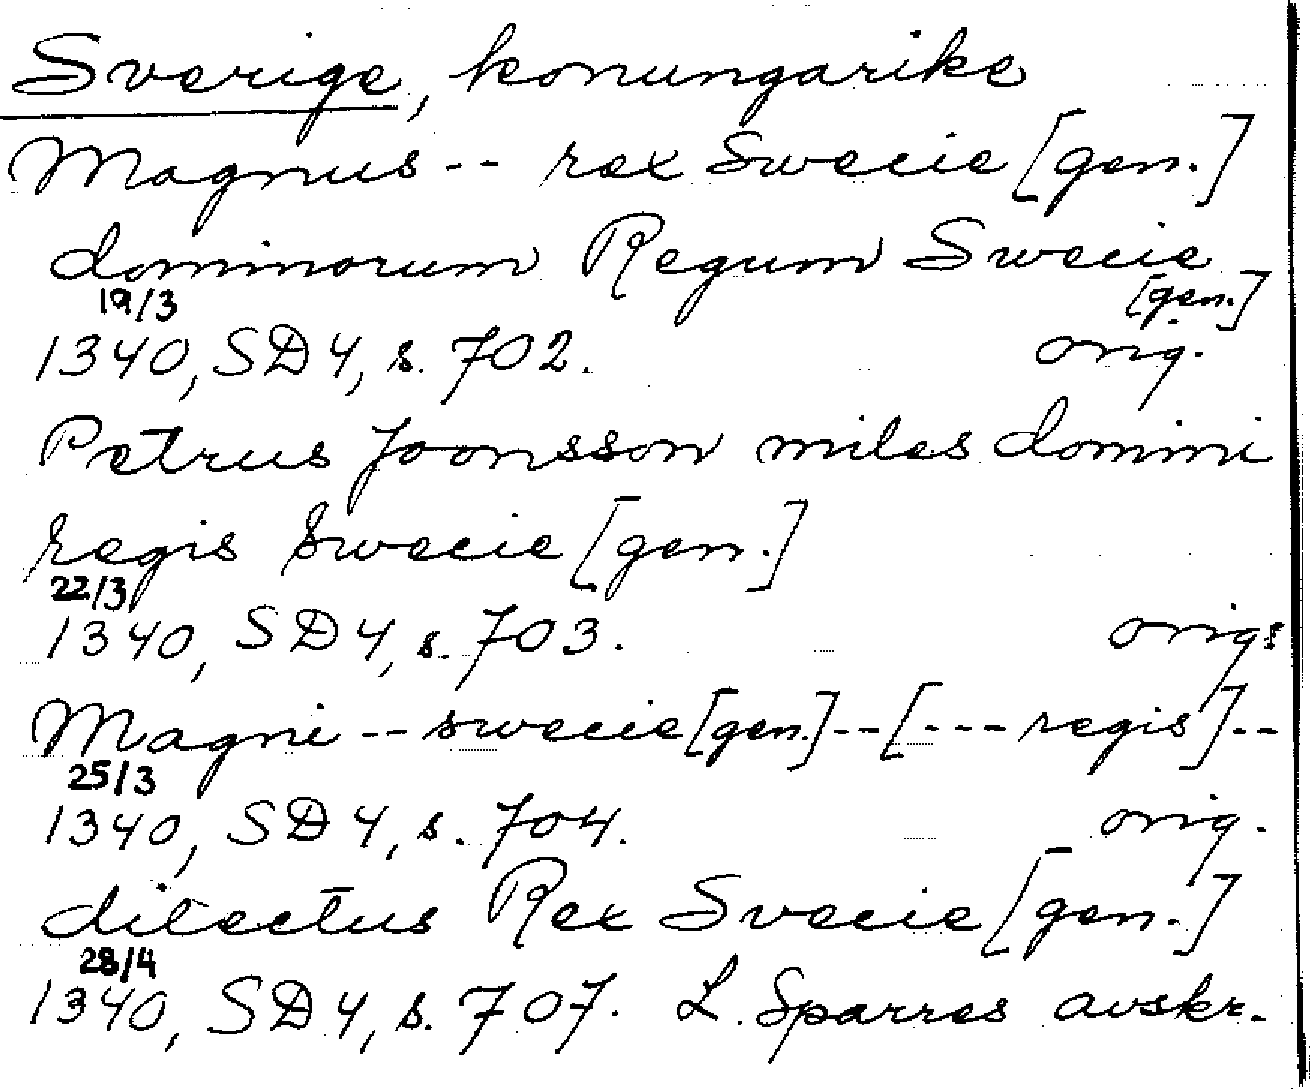 Sverige, konungarike
Magnus -- rex Swecie [gen.]
dominorum Regum Swecie [gen.]
19/3
1340, SD 4, s. 702. orig.
Petrus Joonsson miles domini
regis Swecie [gen.]
22/3
1340, SD 4, s. 703. orig:
Magni -- swecie [gen.] -- [--- regis] --
25/3
1340, SD 4, s. 704. orig.
dilectus Rex Svecie [gen.]
28/4
1340, SD 4, s. 707. L. Sparres avskr.